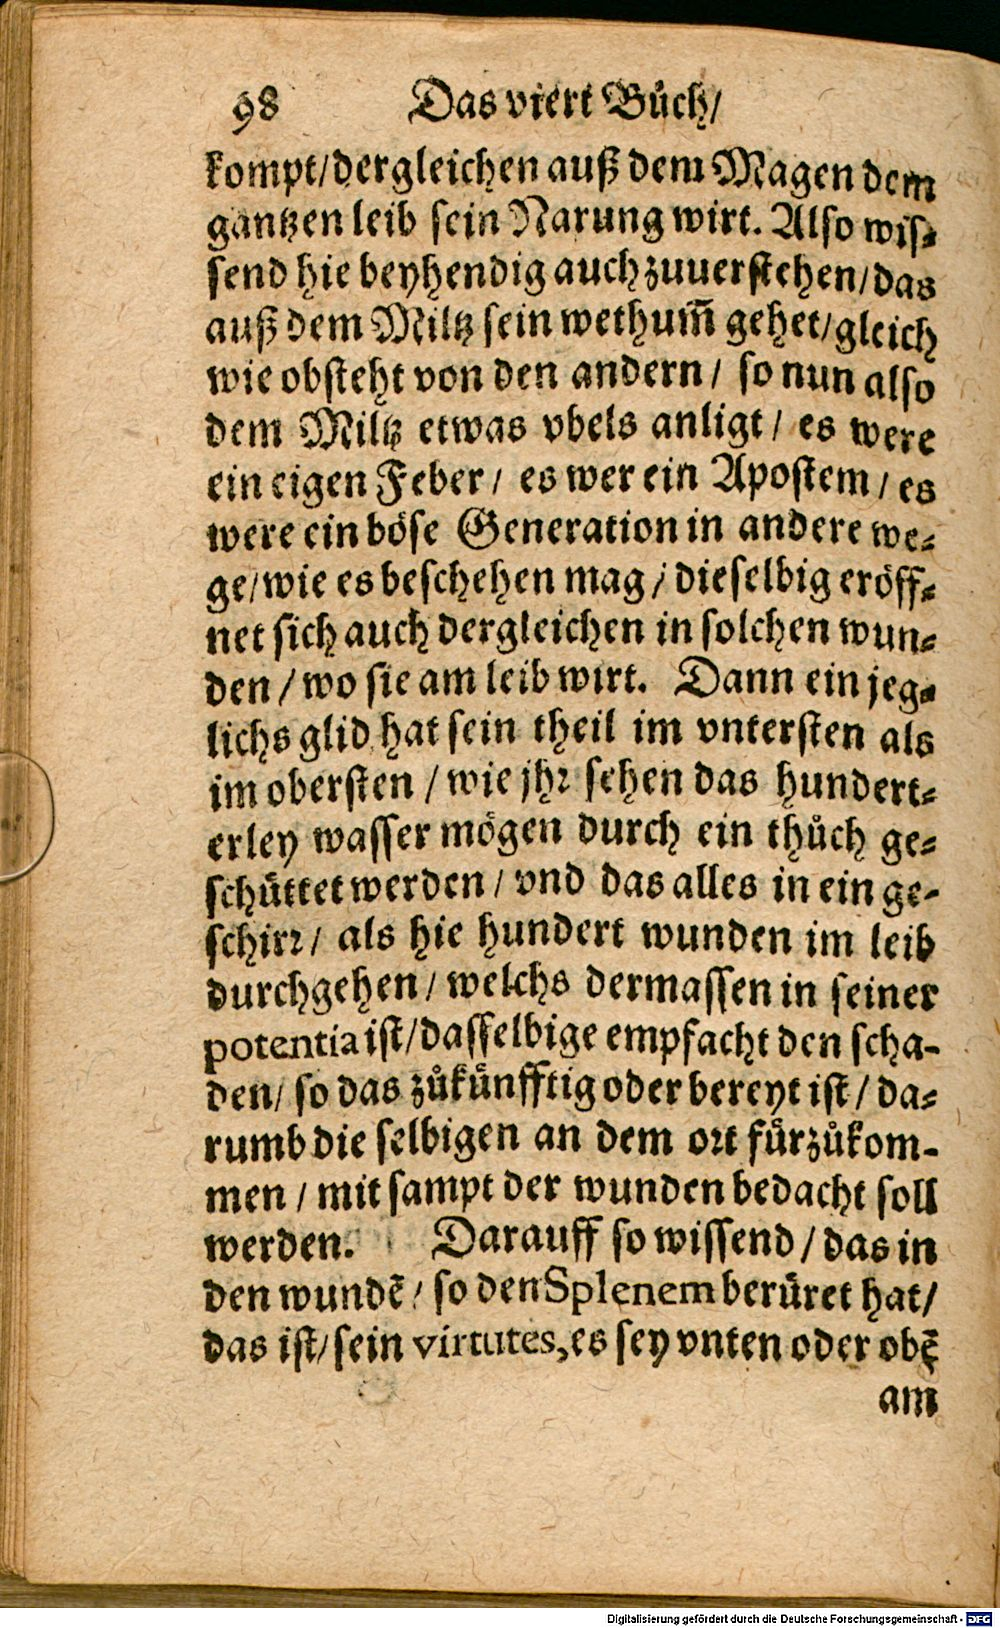 98 Das viert Bůch/
kompt/dergleichen auß dem Magen dem
gantzen leib sein Narung wirt. Also wis⸗
send hie beyhendig auch zuuerstehen/das
auß dem Miltz sein wethum̄ gehet/gleich
wie obsteht von den andern/ so nun also
dem Miltz etwas vbels anligt/ es were
ein eigen Feber/ es wer ein Apostem/ es
were ein böse Generation in andere we⸗
ge/wie es beschehen mag/ dieselbig eröff⸗
net sich auch dergleichen in solchen wun⸗
den/wo sie am leib wirt. Dann ein jeg⸗
lichs glid hat sein theil im vntersten als
im obersten/wie jhr sehen das hundert⸗
erley wasser mögen durch ein thůch ge⸗
schüttet werden/ vnd das alles in ein ge-
schirr/ als hie hundert wunden im leib
durchgehen/ welchs dermassen in seiner
potentia ist/dasselbige empfacht den scha-
den/ so das zůkünfftig oder bereyt ist/ da⸗
rumb die selbigen an dem ort fürzůkom-
men/mit sampt der wunden bedacht soll
werden. Darauff so wissend/das in
den wundē/ so den Splenem berüret hat/
das ist/sein virtutes,es sey vnten oder obē
am
Digitalisierung gefördert durch die Deutsche Forschungsgemeinschaft - DFG